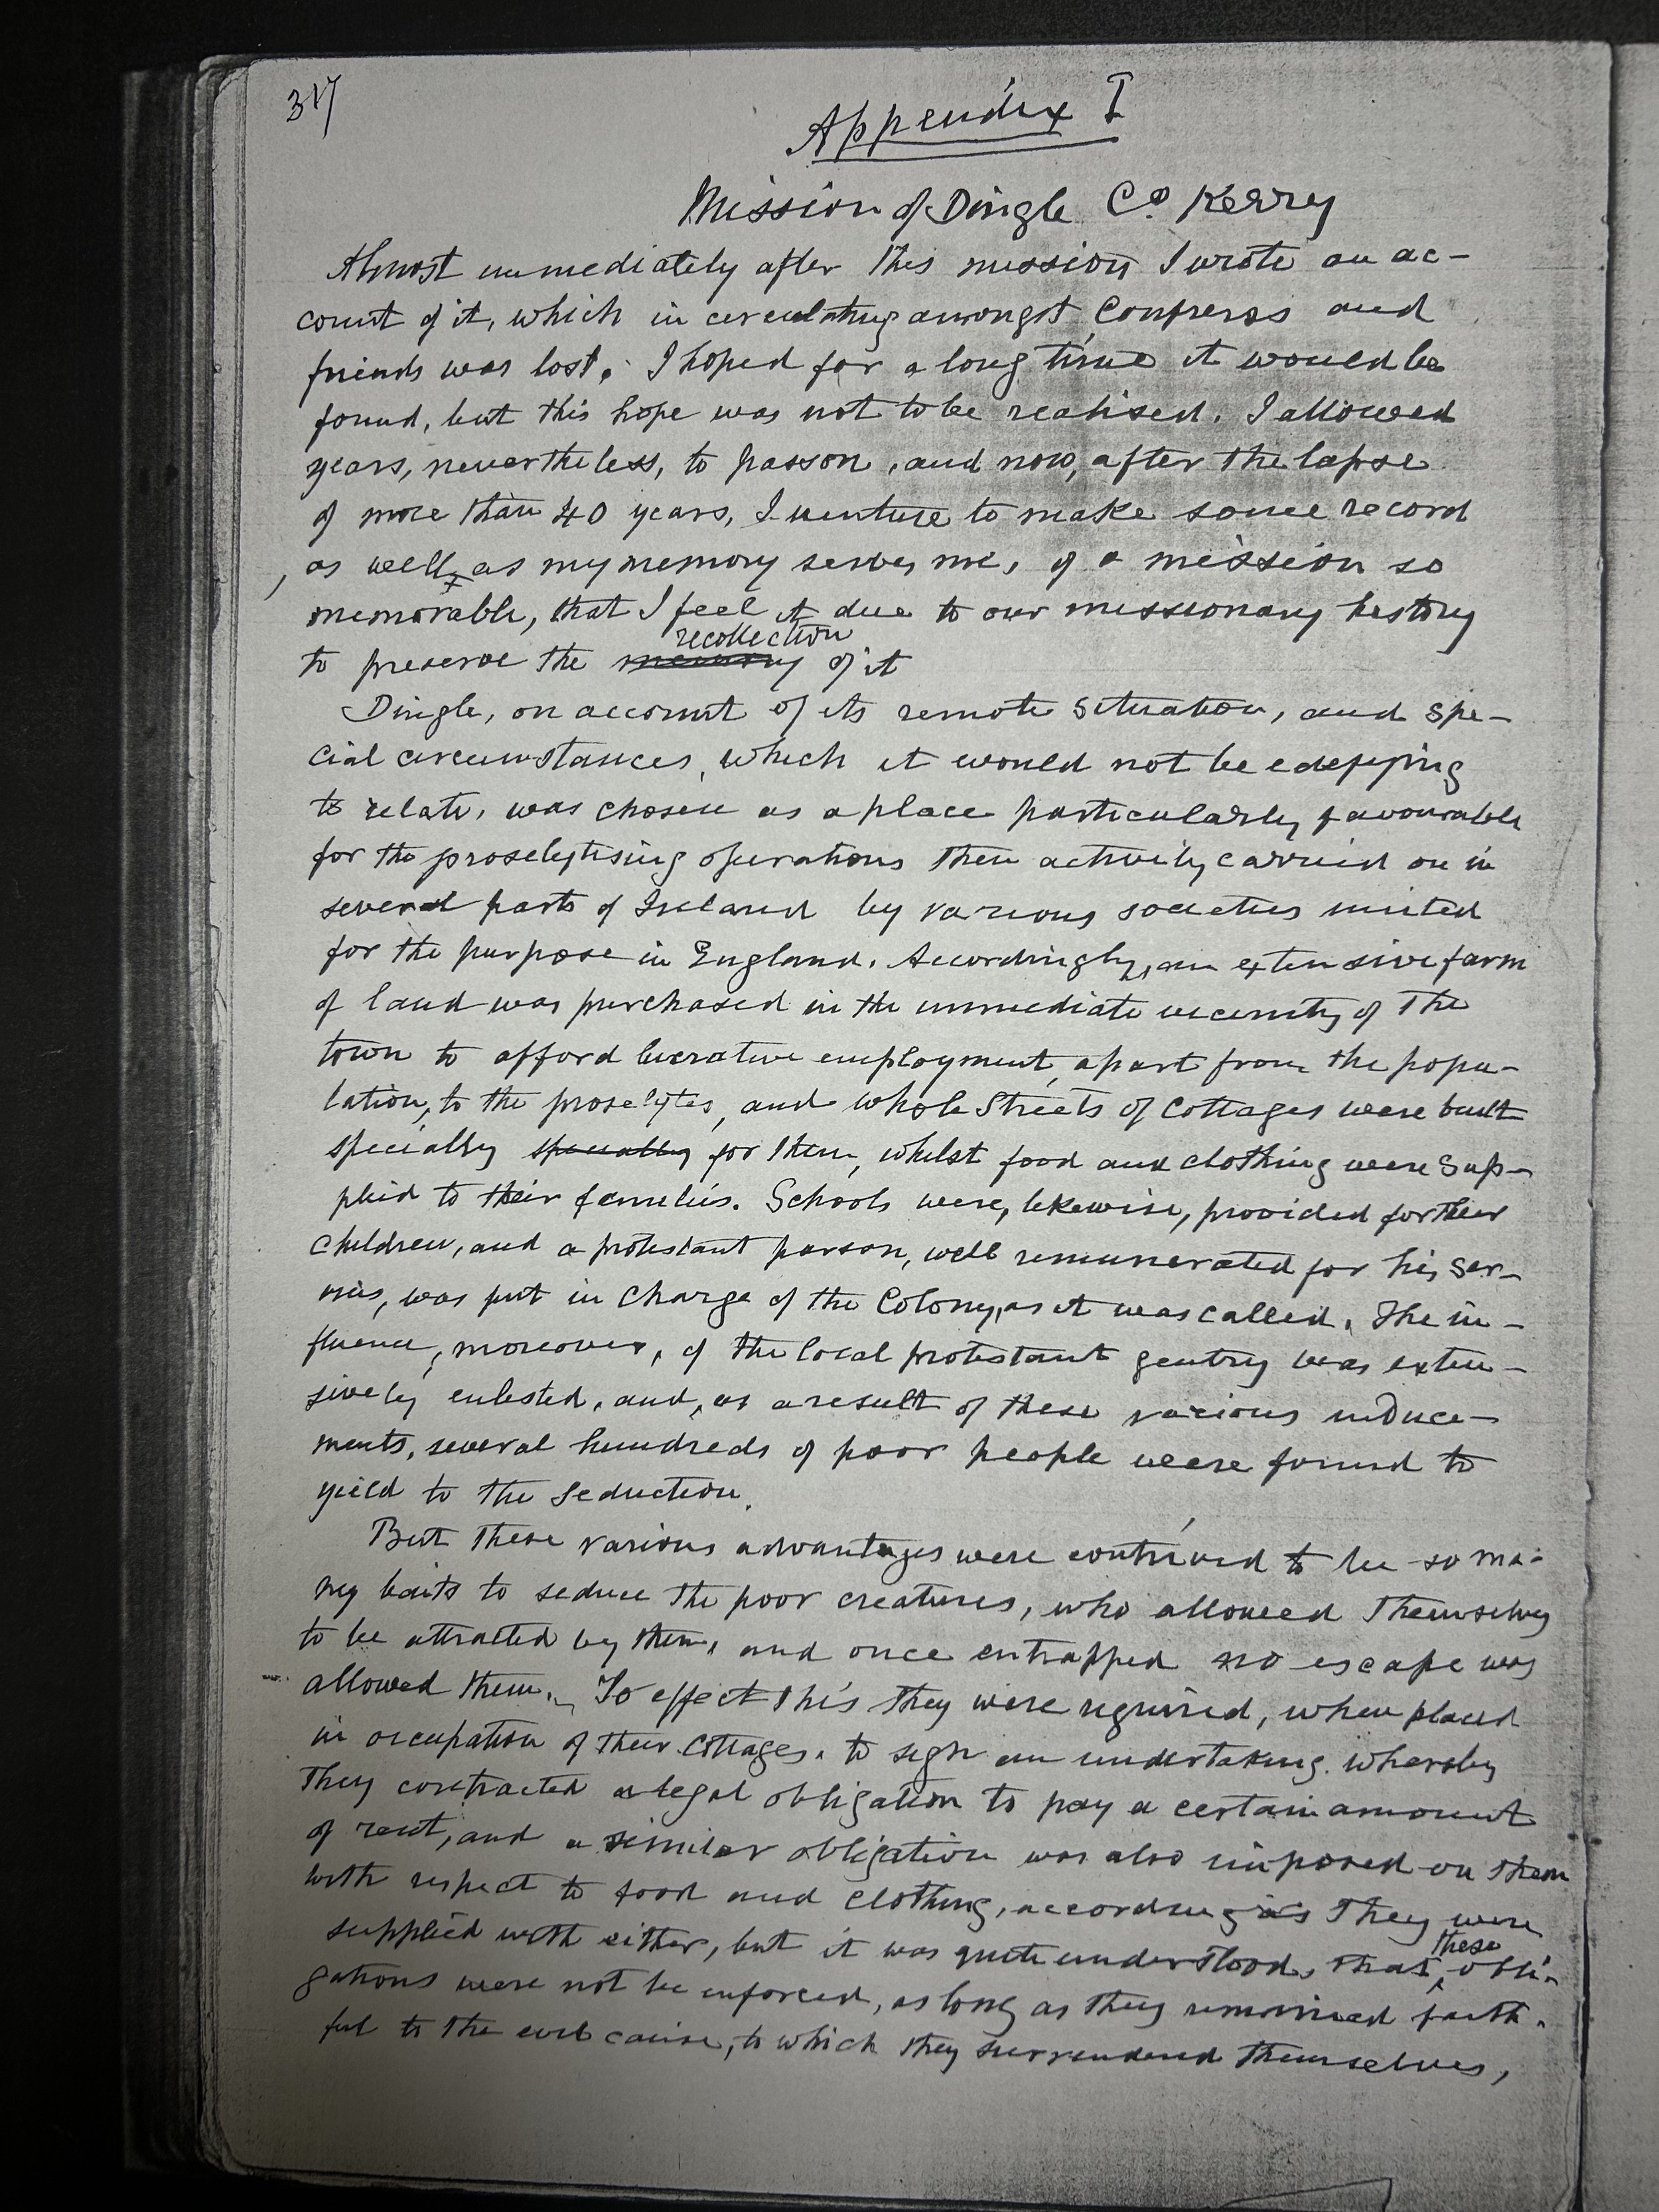 317
Appendix I
Mission of Dingle Co Kerry
Almost immediately after this mission I wrote an ac-
count of it, which in circulating amongst Confreres and
friends was lost. I hoped for a long time it would be
found, but this hope was not to be realised. I allowed
years, nevertheless, to pass on, and now, after the lapse
of more than 40 years, I venture to make some record
as well, as my memory serves me, of a mission so
memorable, that I feel it due to our missionary history
recollection
to preserve the memory of it
Dingle, on account of its remote situation, and spe-
cial circumstances, which it would not be edifying
to relate, was chosen as a place particularly favourable
for the proselytising operations then actively carried on in
several parts of Ireland by various societies united
for the purpose in England. Accordingly, an extensive farm
of land was purchased in the immediate vicinity of the
town to afford lucrative employment, apart from the popu-
lation, to the proselytes, and whole streets of cottages were built
specially specially for them, whilst food and clothing were sup-
plied to their families. Schools were, likewise, provided for their
children, and a protestant parson, well remunerated for his ser-
vices, was put in charge of the Colony, as it was called. The in-
fluence, moreover, of the local protestant gentry was exten-
sively enlisted, and, as a result of these various induce-
ments, several hundreds of poor people were found to
yield to the seduction.
But these various advantages were contrived to be so ma-
ny baits to seduce the poor creatures, who allowed themselves
to be attracted by them, and once entrapped no escape was
allowed them. To effect this they were required, when placed
in occupation of their cottages, to sign an undertaking whereby
they contracted a legal obligation to pay a certain amount
of rent, and a similar obligation was also imposed on them
with respect to food and clothing, according as they were
these
supplied with either, but it was quite understood, that obli-
gations were not be enforced, as long as they remained faith-
ful to the evil cause, to which they surrendered themselves,